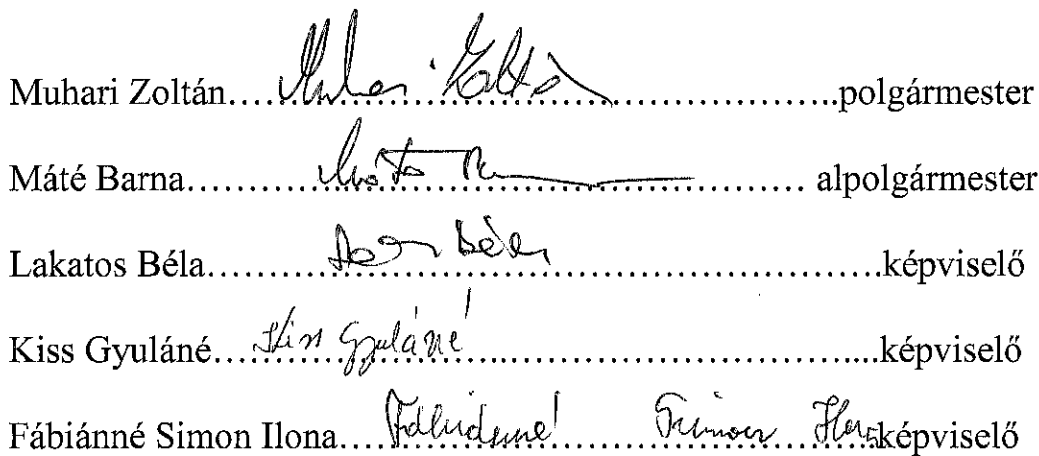 Muhari Zoltán.... Muhari Zoltán ........polgármester
Máté Barna........ Máté ........ alpolgármester
Lakatos Béla........ Béla ........képviselő
Kiss Gyuláné.... Kiss Gyuláné ........képviselő
Fábiánné Simon Ilona.... Fábiánné Simon Ilona képviselő